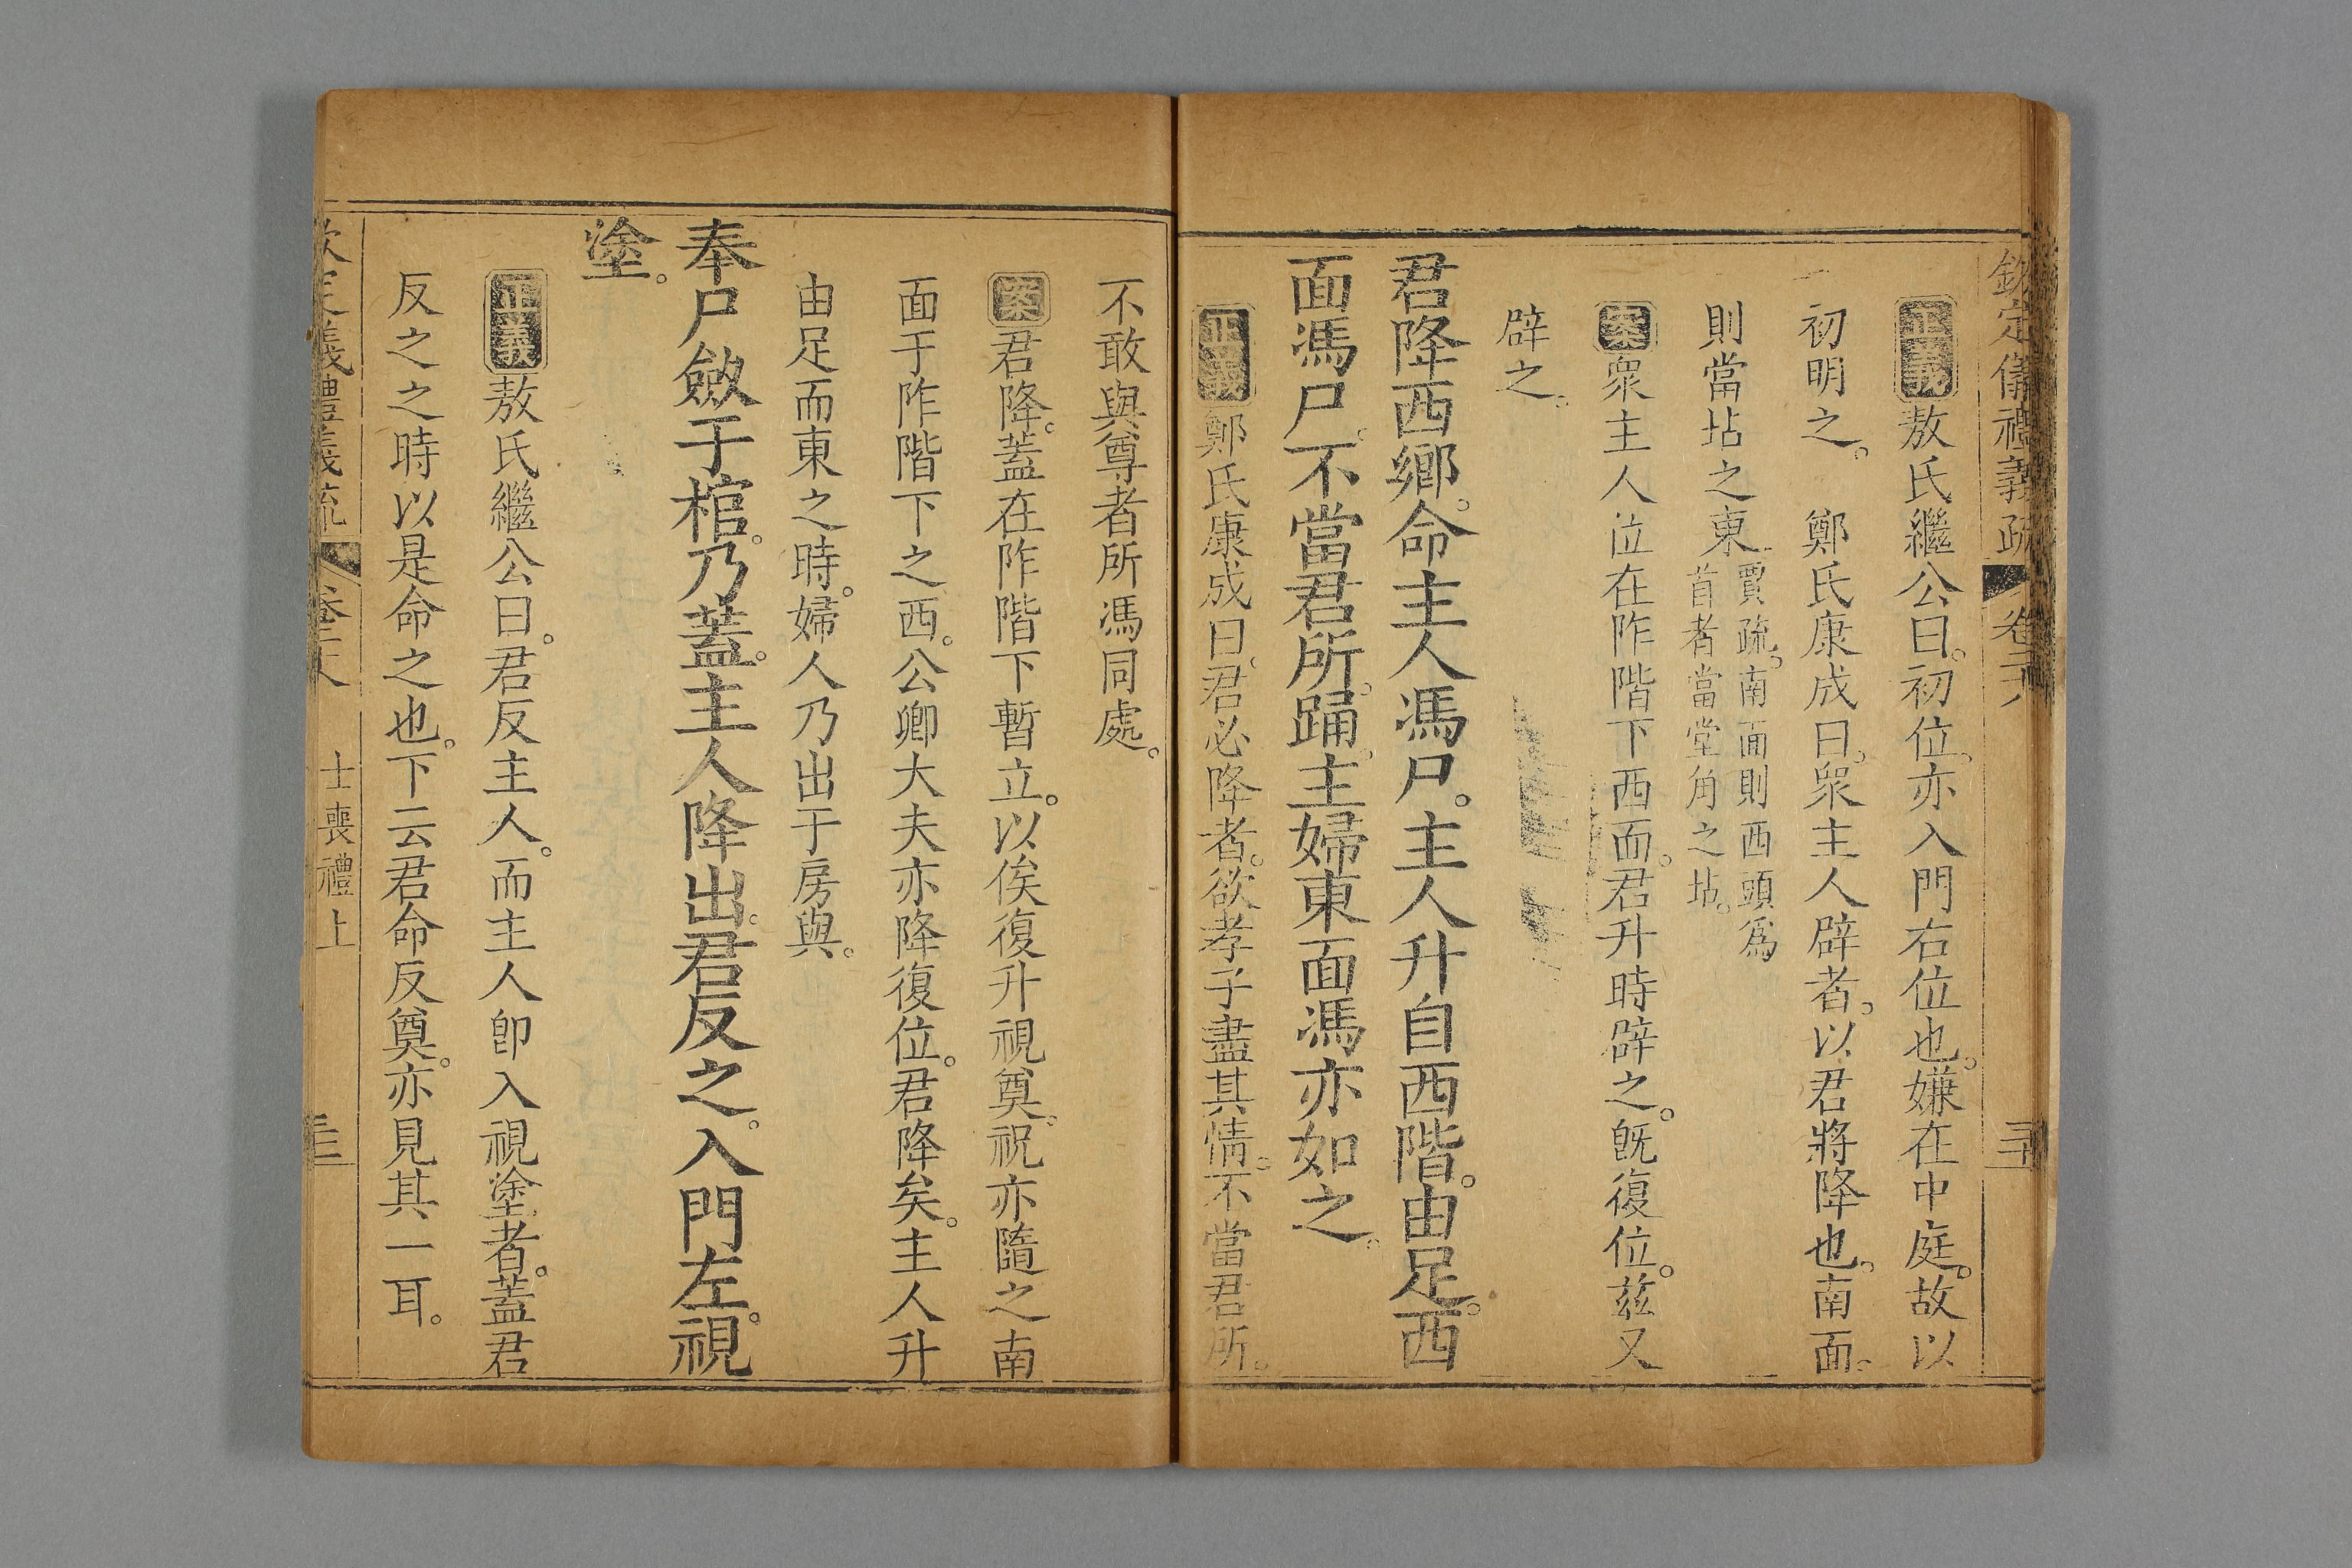 欽定儀禮義疏 卷二十八
正義敖氏繼公曰。初位。亦入門右位也。嫌在中庭。故以
初明之。 鄭氏康成曰。衆主人辟者。以君將降也。南面。
則當坫之東 賈疏。南面則西頭爲
首者當堂角之坫。
案衆主人位在阼階下西面。君升時辟之。旣復位。兹又
辟之。
君降西鄉。命主人馮尸。主人升自西階。由足。西
面馮尸。不當君所。踊。主婦東面馮亦如之。
正義鄭氏康成曰。君必降者。欲孝子盡其情。不當君所。
不敢與尊者所馮同處。
案君降。蓋在阼階下暫立。以俟復升視奠。祝亦隨之南
面于阼階下之西。公卿大夫亦降復位。君降矣。主人升
由足而東之時。婦人乃出于房與。
奉尸斂于棺。乃蓋。主人降出。君反之。入門左。視
塗。
正義敖氏繼公曰。君反主人。而主人卽入視塗者。蓋君
反之之時以是命之也。下云君命反奠。亦見其一耳。
士喪禮上